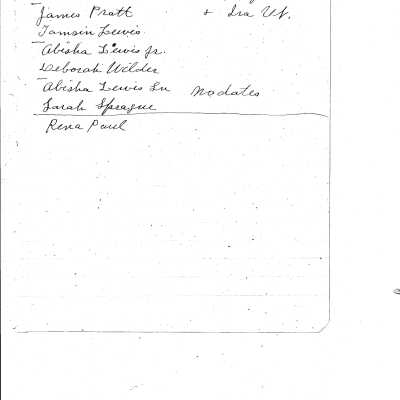 James Pratt + Ira W.
Tamsin Lewis
Abisha Lewis Jr.
Deborah Wilder
Abisha Lewis Sn no dates
Sarah Sprague
Rena Paul